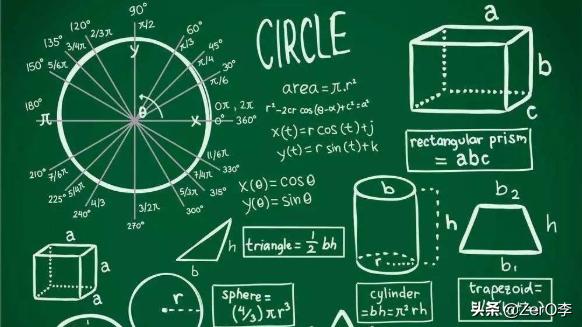 90°
120°
2/3π
π/2
60°
π/3
135°
3/4π
45°
π/4
150°
5/6π
30°
π/6
y
θ
180°
π
x
0π, 2π
0°
360°
210°
7/6π
11/6π
330°
225°
5/4π
7/4π
315°
240°
4/3
5/3π
300°
3/2π
270°
CIRCLE
area = π.r²
r²-2cr cos(θ-α)+c²=a²
x(t)=r cos(t)+j
y(t)=r sin(t)+k
x(θ)=cosθ
y(θ)=sinθ
a
b
c
rectangular prism
= abc
b
h
r
b₂
h
b₁
a
a
a
h
b
triangle = 1/2 bh
r
sphere=
(4/3)πr³
cylinder
=bh=π²rh
trapezoid=
头条 @ZerO李